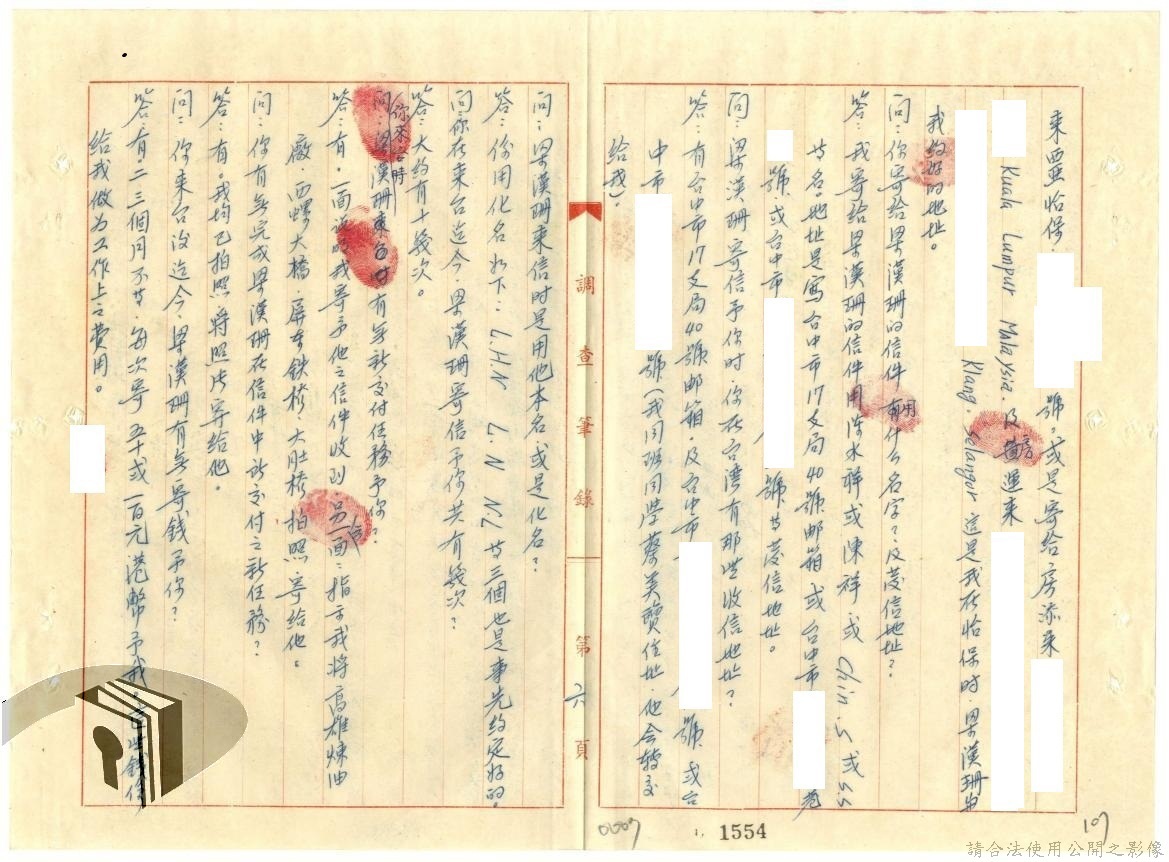 來亞怡保
號。或是寄給房添來
Kuala Lumpur Malaysia. 及房運來
Klang. Selangor 這是我在怡保時.梁漢珊與
我約好的地址。
問:你寄給梁漢珊的信件用什么名字?及發信地址?
答:我寄給梁漢珊的信件用陳水祥或陳祥.或 Chin.S 或 S.S
等名.地址是寫台中市17支局40號郵箱.或台中市 巷
號.或台中市 號等發信地址。
問:梁漢珊寄信予你時.你在台灣有那些收信地址?
答:有台中市17支局40號郵箱.及台中市 號.或台
中市 號(我同班同學蔡美寶住址.他會轉交
給我)。
調查筆錄 第六頁
問:梁漢珊來信時是用他本名.或是化名?
答:係用化名如下:L.H.N L.N N.7等三個也是事先約定好的。
問:你在來台迄今.梁漢珊寄信予你共有幾次?
答:大約有十幾次。
問:你來台時梁漢珊有無新交付任務予你?
答:有。一面說明我寄予他之信件收到.另一面:指示我將高雄煉油
廠.西螺大橋.屏東鉄橋.大肚橋拍照寄給他。
問:你有無完成梁漢珊在信件中所交付之新任務?
答:有。我均已拍照.將照片寄給他。
問:你來台後迄今.梁漢珊有無寄錢予你?
答:有.二三個月不等.每次寄五十或一百元港幣予我。這些錢係
給我做为工作上之費用。
1554
107
請合法使用公開之影像